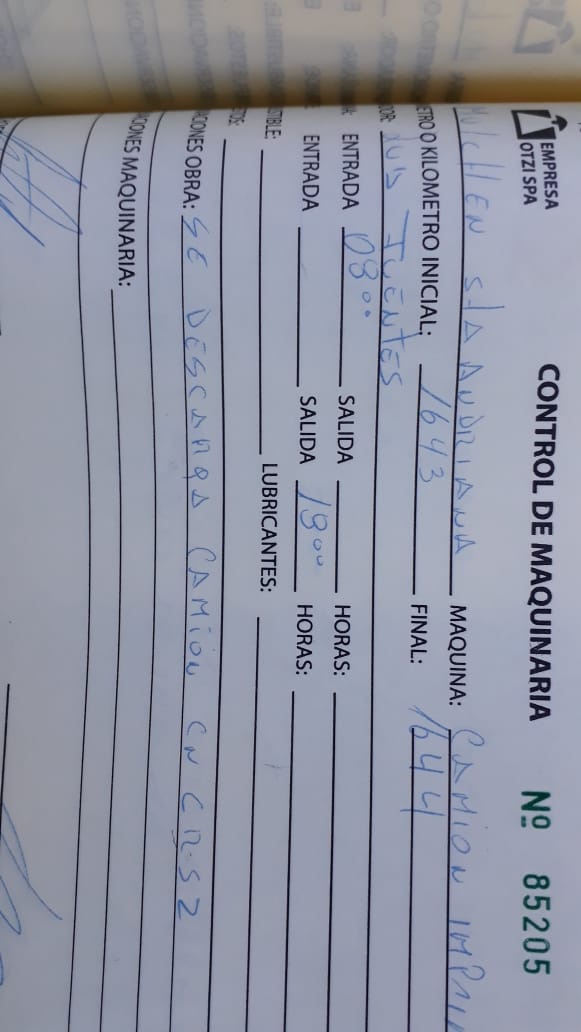 EMPRESA
OTZI SPA
CONTROL DE MAQUINARIA Nº 85205
MULCHEN StA ANDRIANA MAQUINA: CAMION
ETRO O KILOMETRO INICIAL: 1643 FINAL: 1644
DOR: LUIS FUENTES
ENTRADA 08°° SALIDA HORAS:
ENTRADA SALIDA 18°° HORAS:
STIBLE: LUBRICANTES:
TOS:
ACIONES OBRA: SE DESCARGA CAMION EN CR-S2
ACIONES MAQUINARIA: